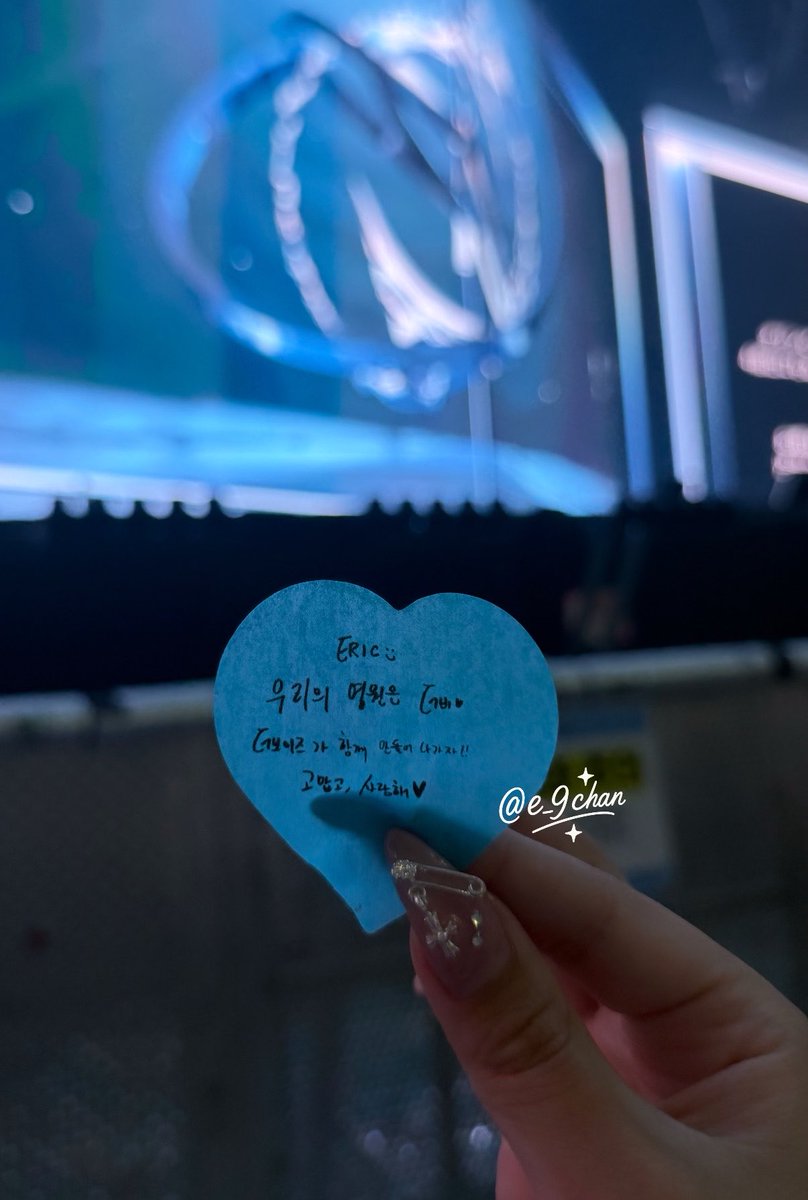 ERIC :)
우리의 영원은 더비♥
더보이즈가 함께 만들어 나가자!!
고맙고, 사랑해♥
@e_9chan